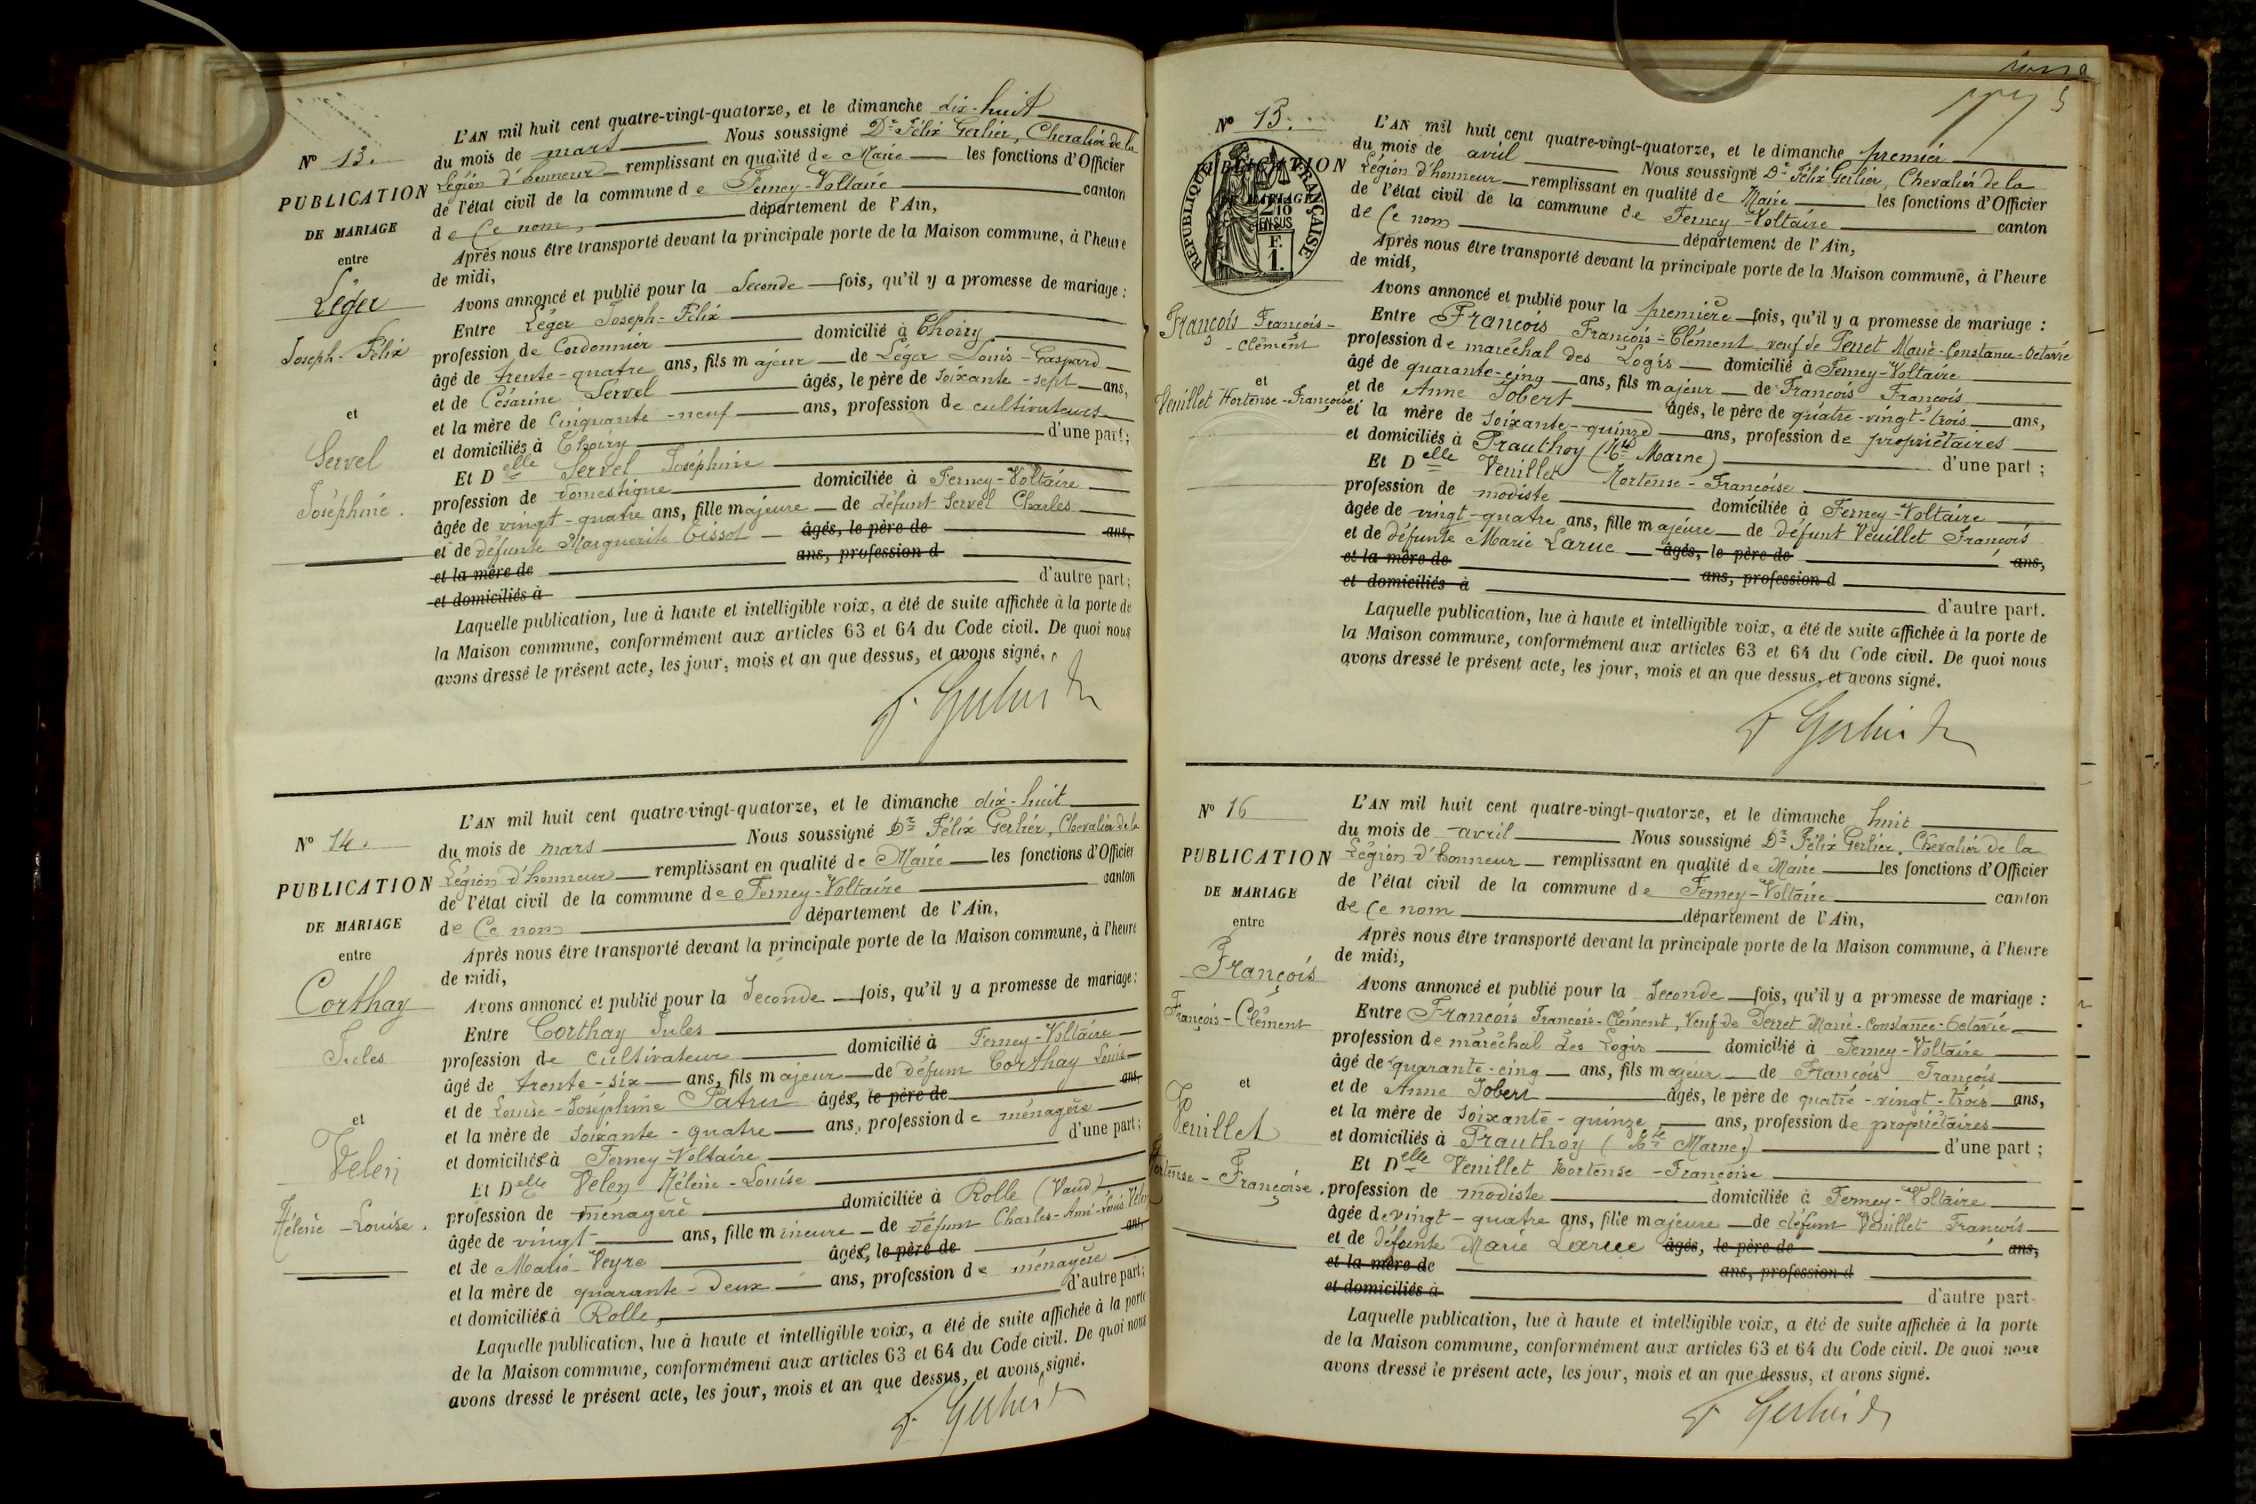 L'AN mil huit cent quatre-vingt-quatorze, et le dimanche dix-huit
du mois de mars Nous soussigné Dr Félix Gerlier, Chevalier de la
Légion d'honneur remplissant en qualité de Maire les fonctions d'Officier
de l'état civil de la commune de Ferney-Voltaire canton
de Ce nom, département de l'Ain,
Après nous être transporté devant la principale porte de la Maison commune, à l'heure
de midi,
Avons annoncé et publié pour la Seconde fois, qu'il y a promesse de mariage :
Entre Léger Joseph-Félix
profession de Cordonnier domicilié à Thoiry
âgé de trente-quatre ans, fils majeur de Léger Louis-Gaspard
et de Césarine Servel âgés, le père de soixante-sept ans,
et la mère de Cinquante-neuf ans, profession de cultivateurs
et domiciliés à Thoiry d'une part;
Et Delle Servel Joséphine
profession de domestique domiciliée à Ferney-Voltaire
âgée de vingt-quatre ans, fille majeure de défunt Servel Charles
et de défunte Marguerite Tissot âgés, le père de ans,
et la mère de ans, profession d
et domiciliés à d'autre part;
Laquelle publication, lue à haute et intelligible voix, a été de suite affichée à la porte de
la Maison commune, conformément aux articles 63 et 64 du Code civil. De quoi nous
avons dressé le présent acte, les jour, mois et an que dessus, et avons signé.
F. Gerlier Dr
N° 13.
PUBLICATION
DE MARIAGE
entre
Léger
Joseph-Félix
et
Servel
Joséphine.
L'AN mil huit cent quatre-vingt-quatorze, et le dimanche dix-huit
du mois de mars Nous soussigné Dr Félix Gerlier, Chevalier de la
Légion d'honneur remplissant en qualité de Maire les fonctions d'Officier
de l'état civil de la commune de Ferney-Voltaire canton
de Ce nom département de l'Ain,
Après nous être transporté devant la principale porte de la Maison commune, à l'heure
de midi,
Avons annoncé et publié pour la Seconde fois, qu'il y a promesse de mariage:
Entre Corthay Jules
profession de cultivateur domicilié à Ferney-Voltaire
âgé de trente-six ans, fils majeur de défunt Corthay Louis
et de Louise-Joséphine Patru âgée, le père de ans,
et la mère de soixante-quatre ans, profession de ménagère
et domiciliée à Ferney-Voltaire d'une part;
Et Delle Velen Hélène-Louise
profession de ménagère domiciliée à Rolle (Vaud)
âgée de vingt ans, fille mineure de défunt Charles-Ami-Louis Velen
et de Marie Veyre âgée, le père de ans,
et la mère de quarante-deux ans, profession de ménagère
et domiciliée à Rolle, d'autre part;
Laquelle publication, lue à haute et intelligible voix, a été de suite affichée à la porte
de la Maison commune, conformément aux articles 63 et 64 du Code civil. De quoi nous
avons dressé le présent acte, les jour, mois et an que dessus, et avons signé.
F. Gerlier Dr
N° 14.
PUBLICATION
DE MARIAGE
entre
Corthay
Jules
et
Velen
Hélène-Louise.
L'AN mil huit cent quatre-vingt-quatorze, et le dimanche premier
du mois de avril Nous soussigné Dr Félix Gerlier, Chevalier de la
Légion d'honneur remplissant en qualité de Maire les fonctions d'Officier
de l'état civil de la commune de Ferney-Voltaire canton
de Ce nom département de l'Ain,
Après nous être transporté devant la principale porte de la Maison commune, à l'heure
de midi,
Avons annoncé et publié pour la première fois, qu'il y a promesse de mariage :
Entre François François-Clément veuf de Perret Marie-Constance-Octavie
profession de maréchal des Logis domicilié à Ferney-Voltaire
âgé de quarante-cinq ans, fils majeur de François François
et de Anne Jobert âgés, le père de quatre-vingt-trois ans,
et la mère de soixante-quinze ans, profession de propriétaires
et domiciliés à Prauthoy (Hte Marne) d'une part ;
Et Delle Veuillet Hortense-Françoise
profession de modiste domiciliée à Ferney-Voltaire
âgée de vingt-quatre ans, fille majeure de défunt Veuillet François
et de défunte Marie Larue âgés, le père de ans,
et la mère de ans, profession d
et domiciliés à d'autre part.
Laquelle publication, lue à haute et intelligible voix, a été de suite affichée à la porte de
la Maison commune, conformément aux articles 63 et 64 du Code civil. De quoi nous
avons dressé le présent acte, les jour, mois et an que dessus, et avons signé.
F Gerlier Dr
N° 15.
PUBLICATION
DE MARIAGE
RÉPUBLIQUE FRANÇAISE
2/10
EN SUS
F.
1.
François François-
-Clément
et
Veuillet Hortense-Françoise.
L'AN mil huit cent quatre-vingt-quatorze, et le dimanche huit
du mois de avril Nous soussigné Dr Félix Gerlier, Chevalier de la
Légion d'honneur remplissant en qualité de Maire les fonctions d'Officier
de l'état civil de la commune de Ferney-Voltaire canton
de Ce nom département de l'Ain,
Après nous être transporté devant la principale porte de la Maison commune, à l'heure
de midi,
Avons annoncé et publié pour la Seconde fois, qu'il y a promesse de mariage :
Entre François François-Clément, Veuf de Perret Marie-Constance-Octavie
profession de maréchal des Logis domicilié à Ferney-Voltaire
âgé de quarante-cinq ans, fils majeur de François François
et de Anne Jobert âgés, le père de quatre-vingt-trois ans,
et la mère de soixante-quinze ans, profession de propriétaires
et domiciliés à Prauthoy (Hte Marne) d'une part ;
Et Delle Veuillet Hortense-Françoise
profession de modiste domiciliée à Ferney-Voltaire
âgée de vingt-quatre ans, fille majeure de défunt Veuillet François
et de défunte Marie Larue âgés, le père de ans,
et la mère de ans, profession d
et domiciliés à d'autre part
Laquelle publication, lue à haute et intelligible voix, a été de suite affichée à la porte
de la Maison commune, conformément aux articles 63 et 64 du Code civil. De quoi nous
avons dressé le présent acte, les jour, mois et an que dessus, et avons signé.
F Gerlier Dr
N° 16
PUBLICATION
DE MARIAGE
entre
François
François-Clément
et
Veuillet
Hortense-Françoise.